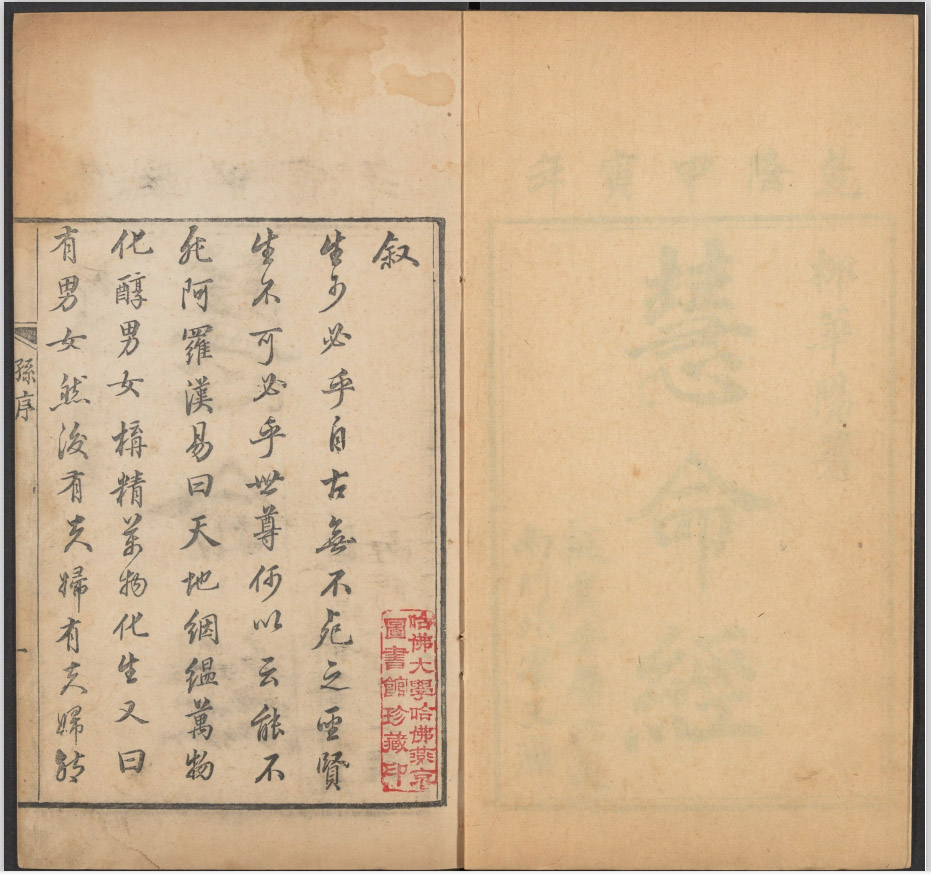 乾隆甲寅年
柳華陽著
慧命經
叙
生可必乎自古無不死之聖賢
生不可必乎世尊何以云能不
死阿羅漢易曰天地絪縕萬物
化醇男女搆精萬物化生又曰
有男女然後有夫婦有夫婦然
孫序
一
哈佛大學哈佛燕京
圖書館珍藏印